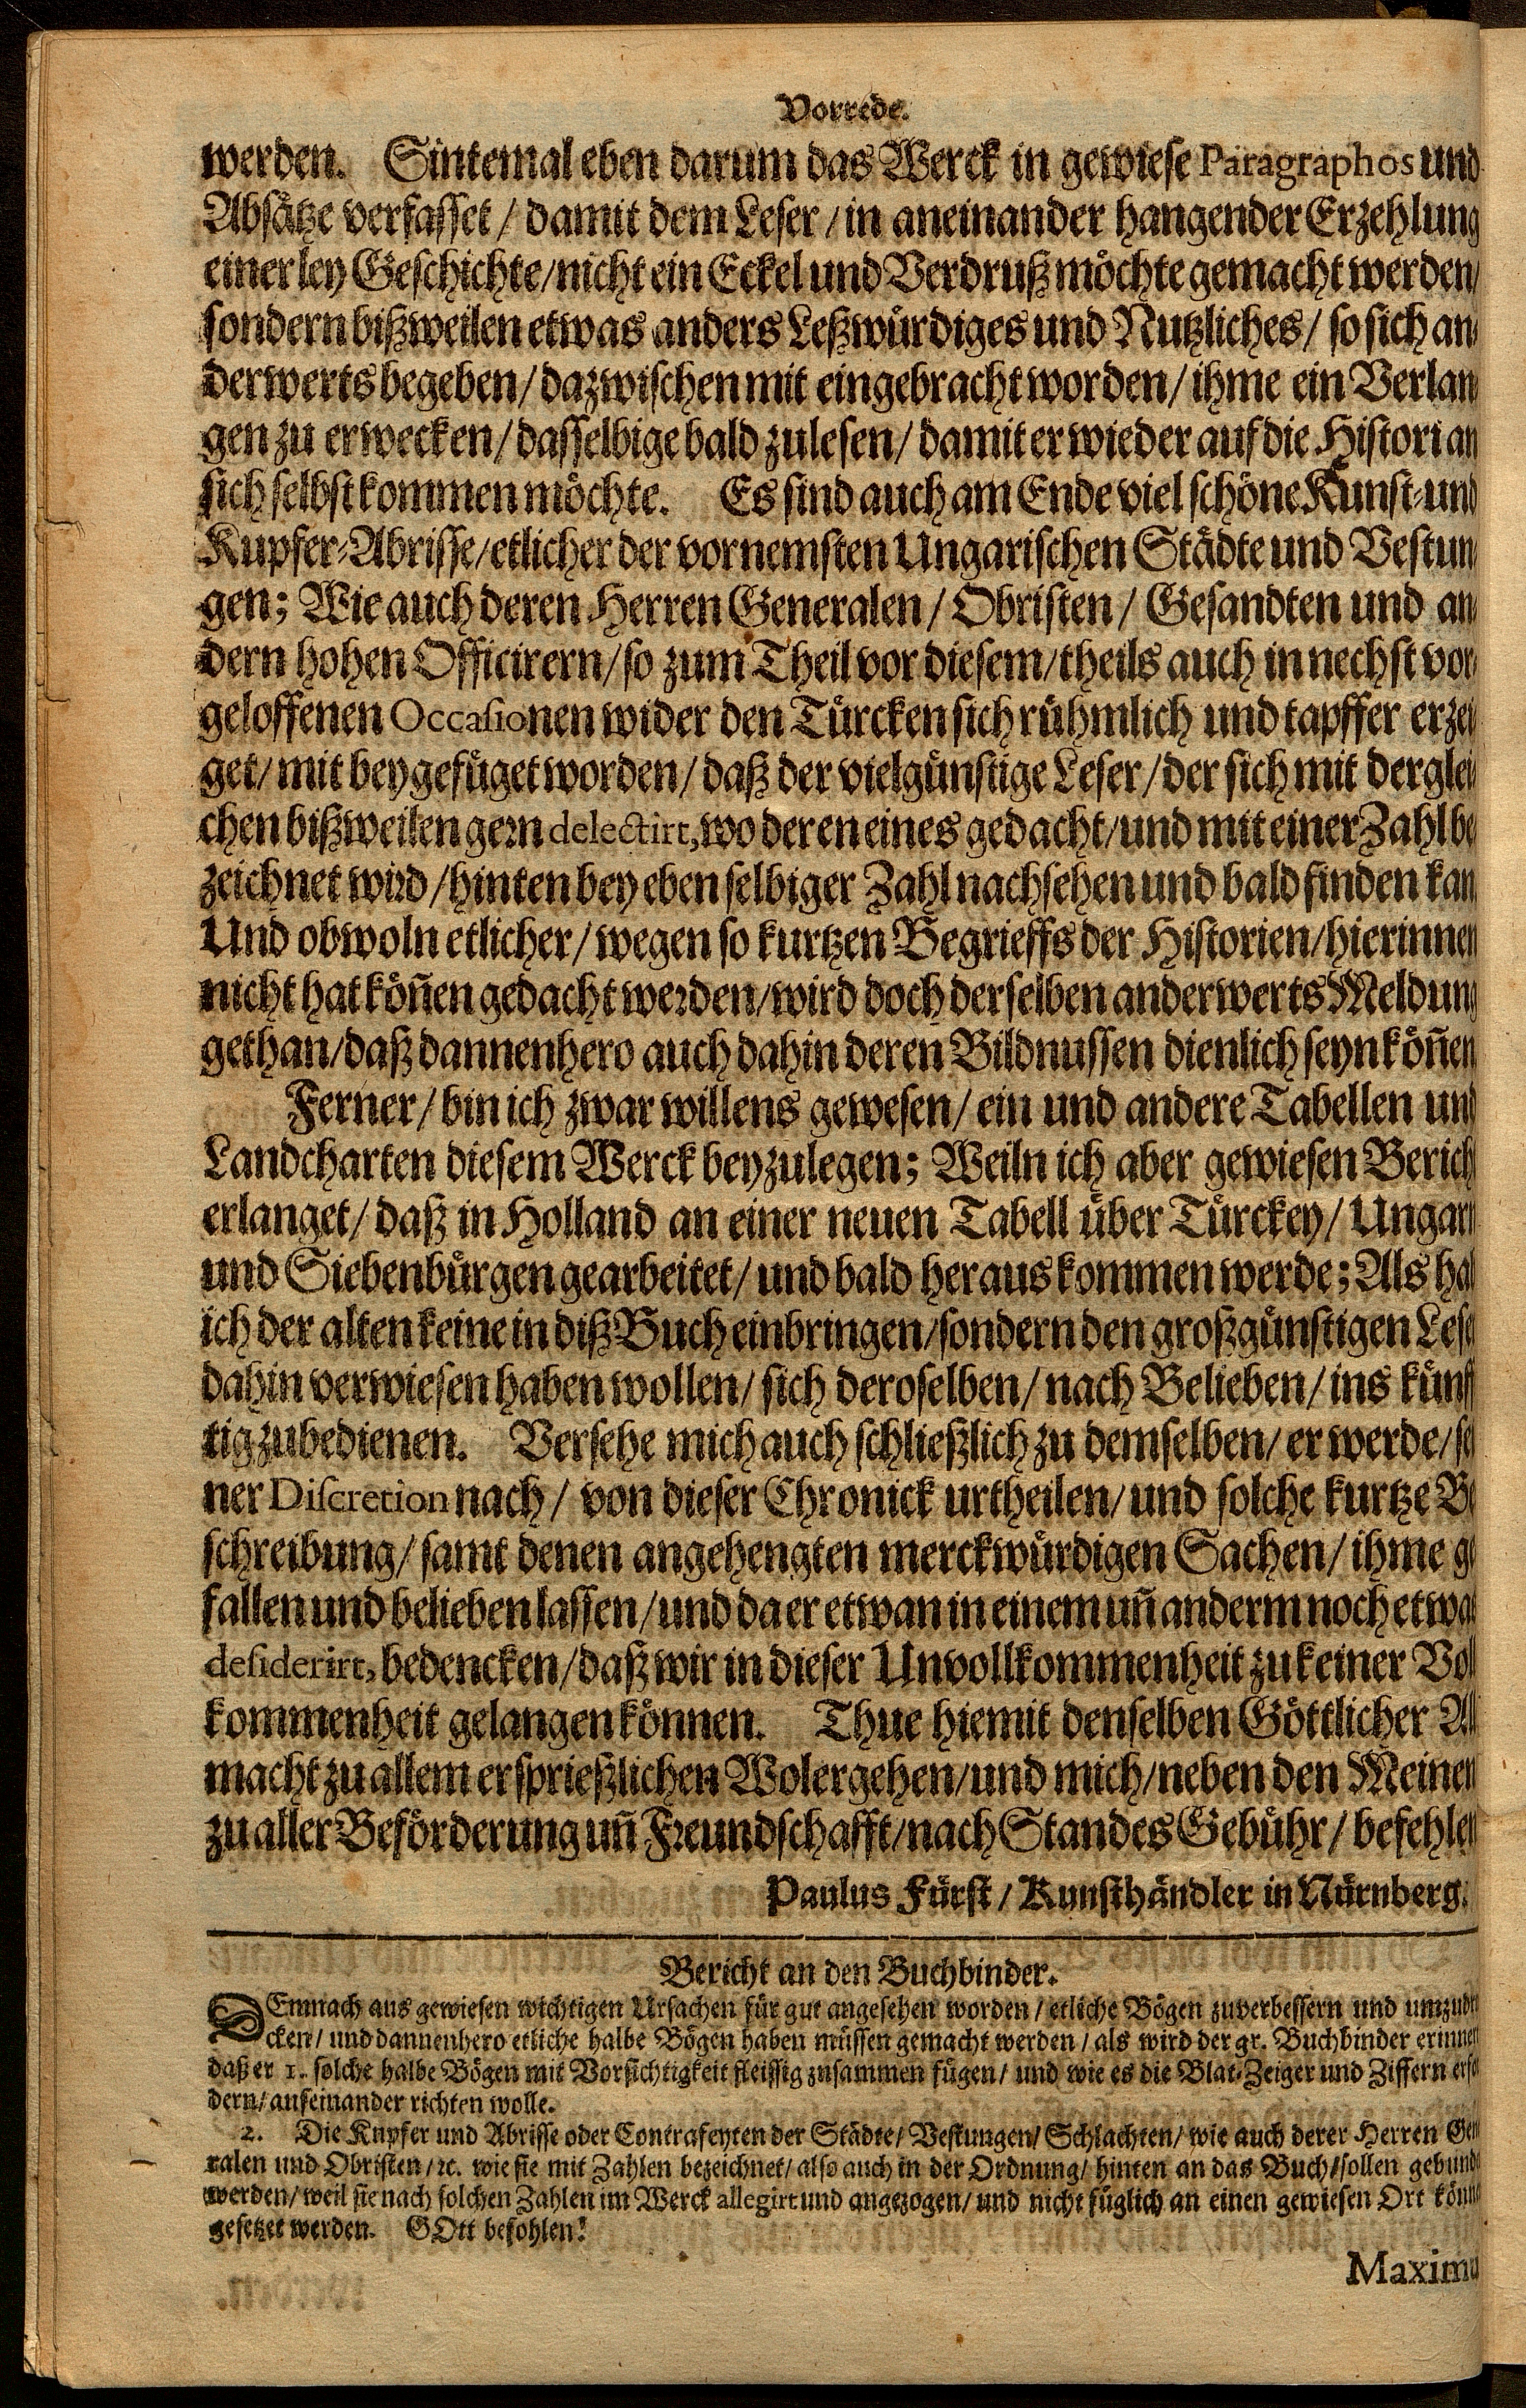 Vorrede.
werden. Sintemal eben darum das Werck in gewiese Paragraphos und
Absätze verfasset / damit dem Leser / in aneinander hangender Erzehlung
einerley Geschichte / nicht ein Eckel und Verdruß möchte gemacht werden /
sondern bißweilen etwas anders Leßwürdiges und Nutzliches / so sich an-
derwerts begeben / dazwischen mit eingebracht worden / ihme ein Verlan-
gen zu erwecken / dasselbige bald zulesen / damit er wieder auf die Histori an
sich selbst kommen möchte. Es sind auch am Ende viel schöne Kunst- und
Kupfer-Abrisse / etlicher der vornemsten Ungarischen Städte und Vestun-
gen; Wie auch deren Herren Generalen / Obristen / Gesandten und an-
dern hohen Officirern / so zum Theil vor diesem / theils auch in nechst vor-
geloffenen Occasionen wider den Türcken sich rühmlich und tapffer erzei-
get / mit beygefüget worden / daß der vielgünstige Leser / der sich mit derglei-
chen bißweilen gern delectirt, wo deren eines gedacht / und mit einer Zahl be-
zeichnet wird / hinten bey eben selbiger Zahl nachsehen und bald finden kan
Und obwoln etlicher / wegen so kurtzen Begrieffs der Historien / hierinnen
nicht hat köñen gedacht werden / wird doch derselben anderwerts Meldung
gethan / daß dannenhero auch dahin deren Bildnussen dienlich seyn köñen
Ferner / bin ich zwar willens gewesen / ein und andere Tabellen und
Landcharten diesem Werck beyzulegen; Weiln ich aber gewiesen Bericht
erlanget / daß in Holland an einer neuen Tabell über Türckey / Ungarn
und Siebenbürgen gearbeitet / und bald heraus kommen werde; Als hab
ich der alten keine in diß Buch einbringen / sondern den großgünstigen Leser
dahin verwiesen haben wollen / sich deroselben / nach Belieben / ins künff-
tig zubedienen. Versehe mich auch schließlich zu demselben / er werde / sei-
ner Discretion nach / von dieser Chronick urtheilen / und solche kurtze Be-
schreibung / samt denen angehengten merckwürdigen Sachen / ihme ge-
fallen und belieben lassen / und da er etwan in einem uñ anderm noch etwas
desiderirt, bedencken / daß wir in dieser Unvollkommenheit zu keiner Voll-
kommenheit gelangen können. Thue hiemit denselben Göttlicher All-
macht zu allem ersprießlichen Wolergehen / und mich / neben den Meinen
zu aller Beförderung uñ Freundschafft / nach Standes Gebühr / befehlen
Paulus Fürst / Kunsthändler in Nürnberg.
Bericht an den Buchbinder.
DEmnach aus gewiesen wichtigen Ursachen für gut angesehen worden / etliche Bögen zuverbessern und umzudru-
cken / und dannenhero etliche halbe Bögen haben müssen gemacht werden / als wird der gr. Buchbinder erinnert
daß er 1. solche halbe Bögen mit Vorsichtigkeit fleissig zusammen fügen / und wie es die Blat-Zeiger und Ziffern erfo-
dern / aufeinander richten wolle.
2. Die Kupfer und Abrisse oder Contrafeyten der Städte / Vestungen / Schlachten / wie auch derer Herren Gene-
ralen und Obristen / ꝛc. wie sie mit Zahlen bezeichnet / also auch in der Ordnung / hinten an das Buch / sollen gebunden
werden / weil sie nach solchen Zahlen im Werck allegirt und angezogen / und nicht füglich an einen gewiesen Ort können
gesetzet werden. GOtt befohlen!
Maximu